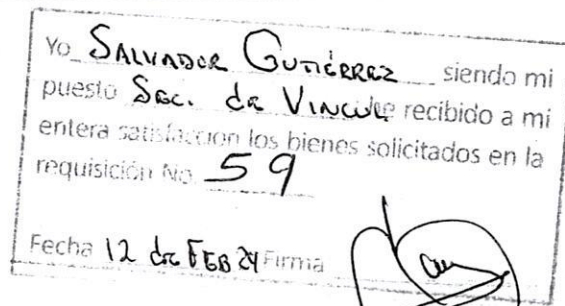 Yo SALVADOR GUTIÉRREZ siendo mi
puesto SEC. de VINCUL recibido a mi
entera satisfaccion los bienes solicitados en la
requisición No. 59
Fecha 12 de FEB 24 Firma